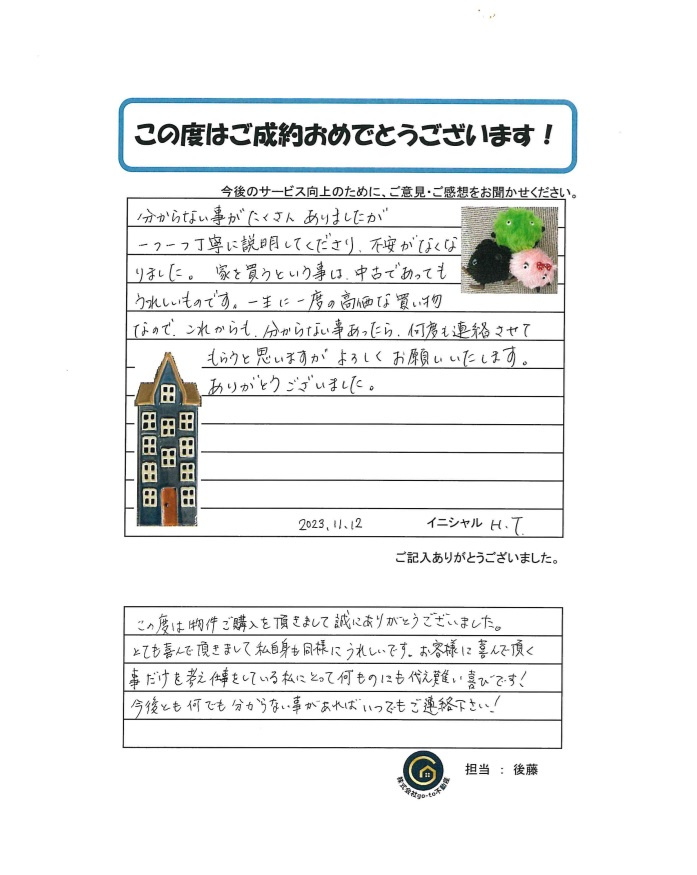 この度はご成約おめでとうございます！
今後のサービス向上のために、ご意見・ご感想をお聞かせください。
分からない事がたくさん ありましたが
一つ一つ丁寧に説明してくださり、不安がなくな
りました。 家を買うという事は、中古であっても
うれしいものです。一生に一度の高価な買い物
なので、これからも、分からない事あったら、何度も連絡させて
もらうと思いますが よろしく お願いいたします。
ありがとうございました。
2023.11.12 イニシャル H.T.
ご記入ありがとうございました。
この度は物件ご購入を頂きまして誠にありがとうございました。
とても喜んで頂きまして私自身も同様にうれしいです。お客様に喜んで頂く
事だけを考え仕事をしている私にとって何ものにも代え難い喜びです！
今後とも何でも分からない事があればいつでもご連絡下さい！
担当 ： 後藤
株式会社go-to不動産